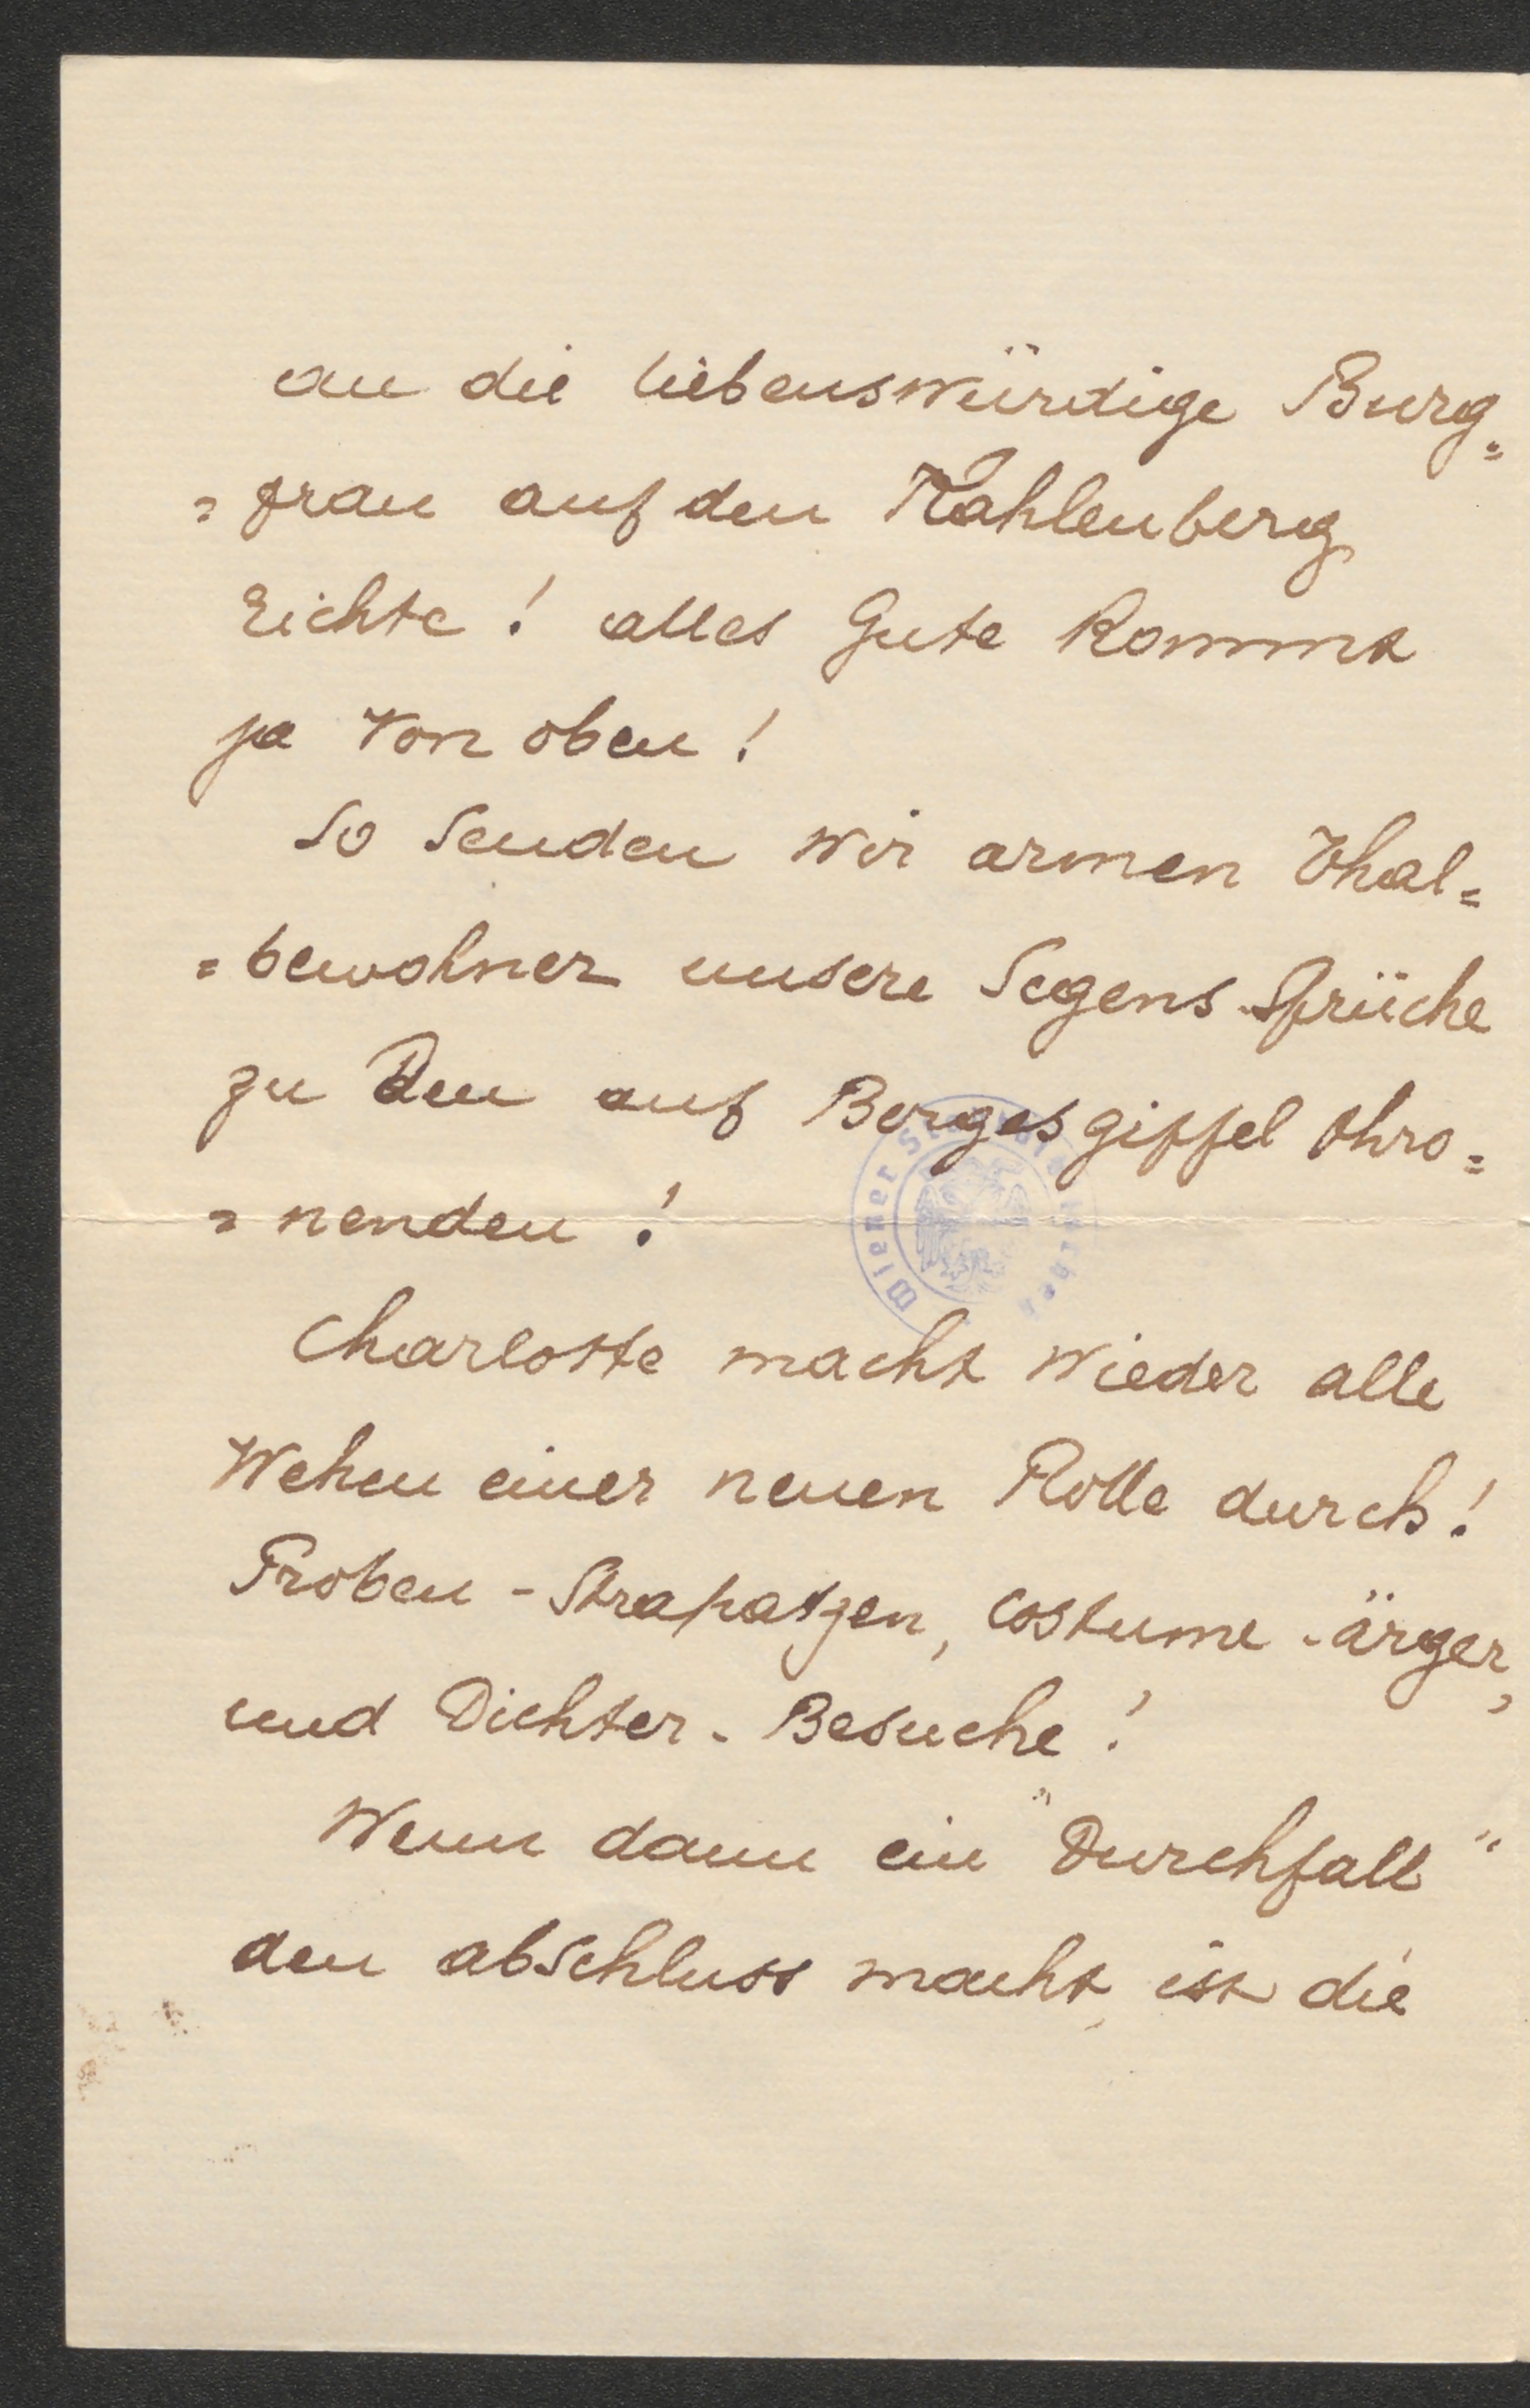 an die liebenswürdige Burg=
=frau auf den Kahlenberg
richte! alles Gute kommt
ja von oben!
So senden wir armen Thal=
=bewohner unsere Segens-Sprüche
zu den auf Bergesgipfel thro=
=nenden!
Charlotte macht wieder alle
Wehen einer neuen Rolle durch!
Proben-Strapatzen, Costume-ärger,
und Dichter-Besuche!
Wenn dann ein "Durchfall"
den abschluss macht, ist die
Wiener